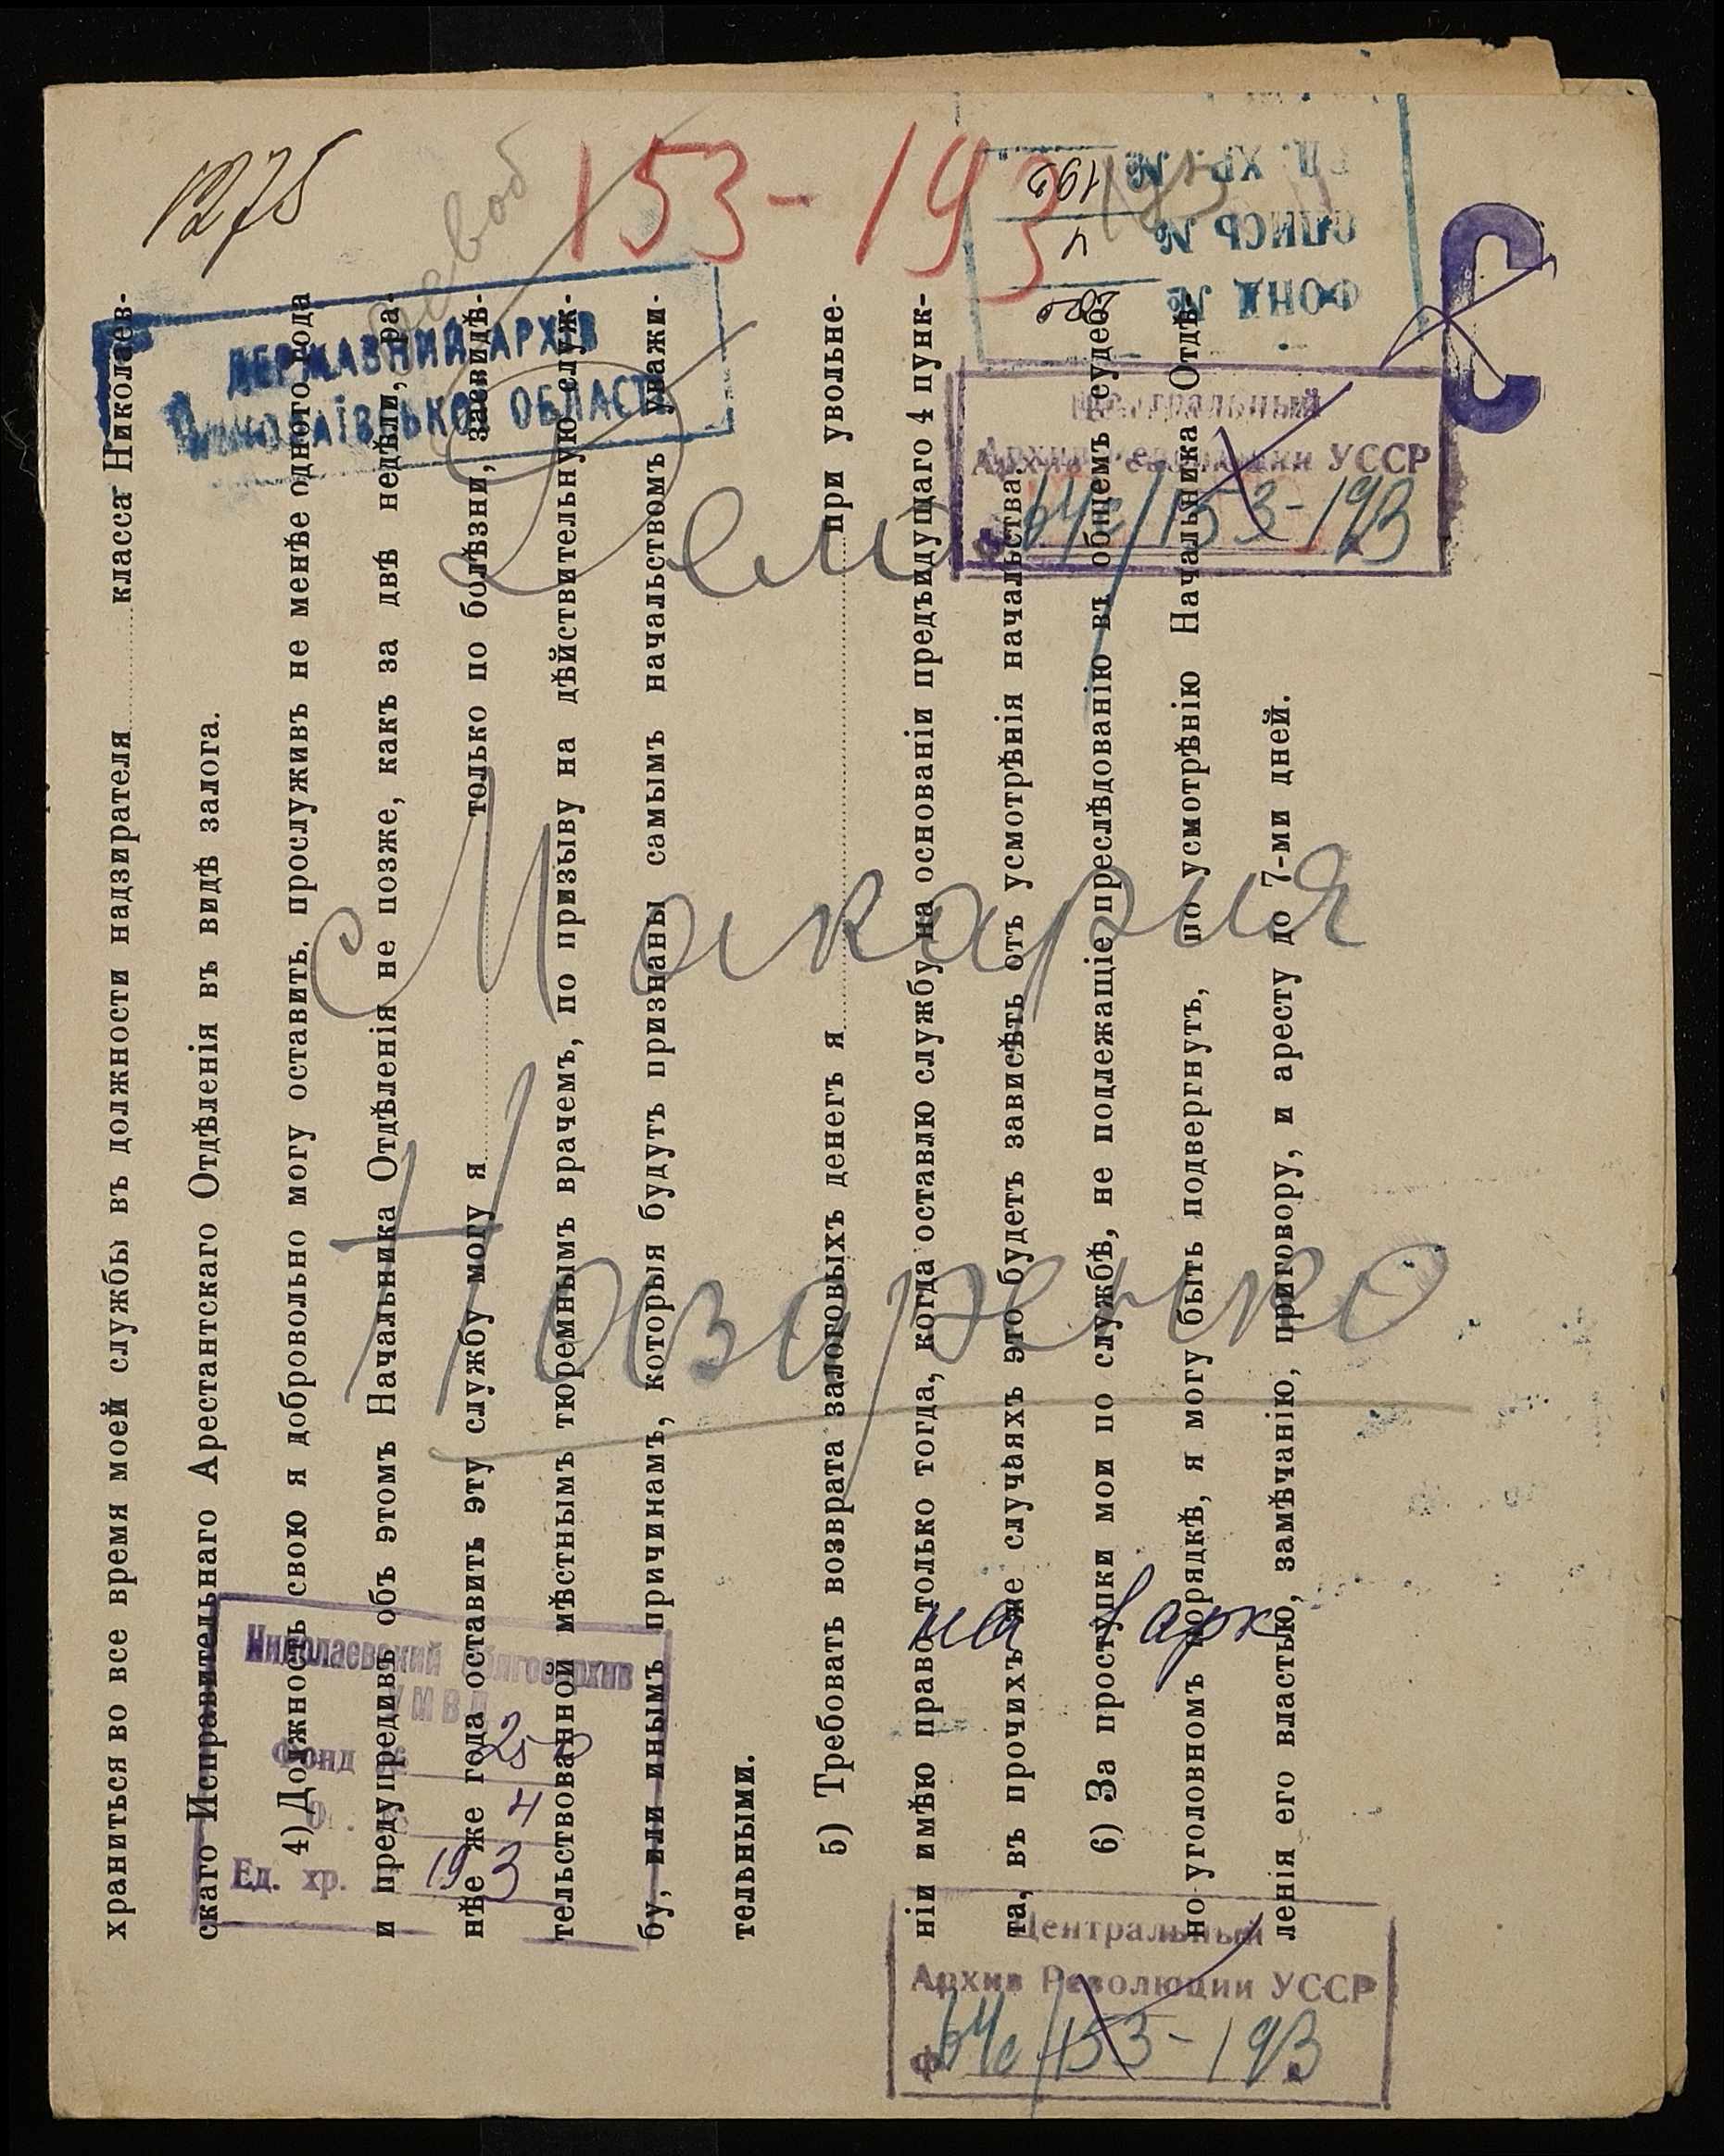 1275
153-193
ДЕРЖАВНИЙ АРХІВ
МИКОЛАЇВСЬКОЇ ОБЛАСТІ
ФОНД №
ОПИСЬ № 4
ЕД. ХР. № 193
Центральный
Архив Революции УССР
153-193
Дело
Макария
на
арх
Николаевский Облгосархив
УМВД
Фонд
4
Ед. хр. 193
Центральный
Архив Революции УССР
153-193
храниться во все время моей службы въ должности надзирателя класса Николаев-
скаго Исправительнаго Арестантскаго Отдѣленія въ видѣ залога.
4) Должность свою я добровольно могу оставить, прослуживъ не менѣе одного года
и предупредивъ объ этомъ Начальника Отдѣленія не позже, какъ за двѣ недѣли, ра-
нѣе же года оставить эту службу могу я только по болѣзни, засвидѣ-
тельствованной мѣстнымъ тюремнымъ врачемъ, по призыву на дѣйствительную служ-
бу, или инымъ причинамъ, которыя будутъ признаны самымъ начальствомъ уважи-
тельными.
5) Требовать возврата залоговыхъ денегъ я при увольне-
ніи имѣю право только тогда, когда оставлю службу на основаніи предъидущаго 4 пунк-
та, въ прочихъ же случаяхъ это будетъ зависѣть отъ усмотрѣнія начальства.
6) За проступки мои по службѣ, не подлежащіе преслѣдованію въ общемъ судеб-
но уголовномъ порядкѣ, я могу быть подвергнутъ, по усмотрѣнію Начальника Отдѣ-
ленія его властью, замѣчанію, приговору, и аресту до 7-ми дней.